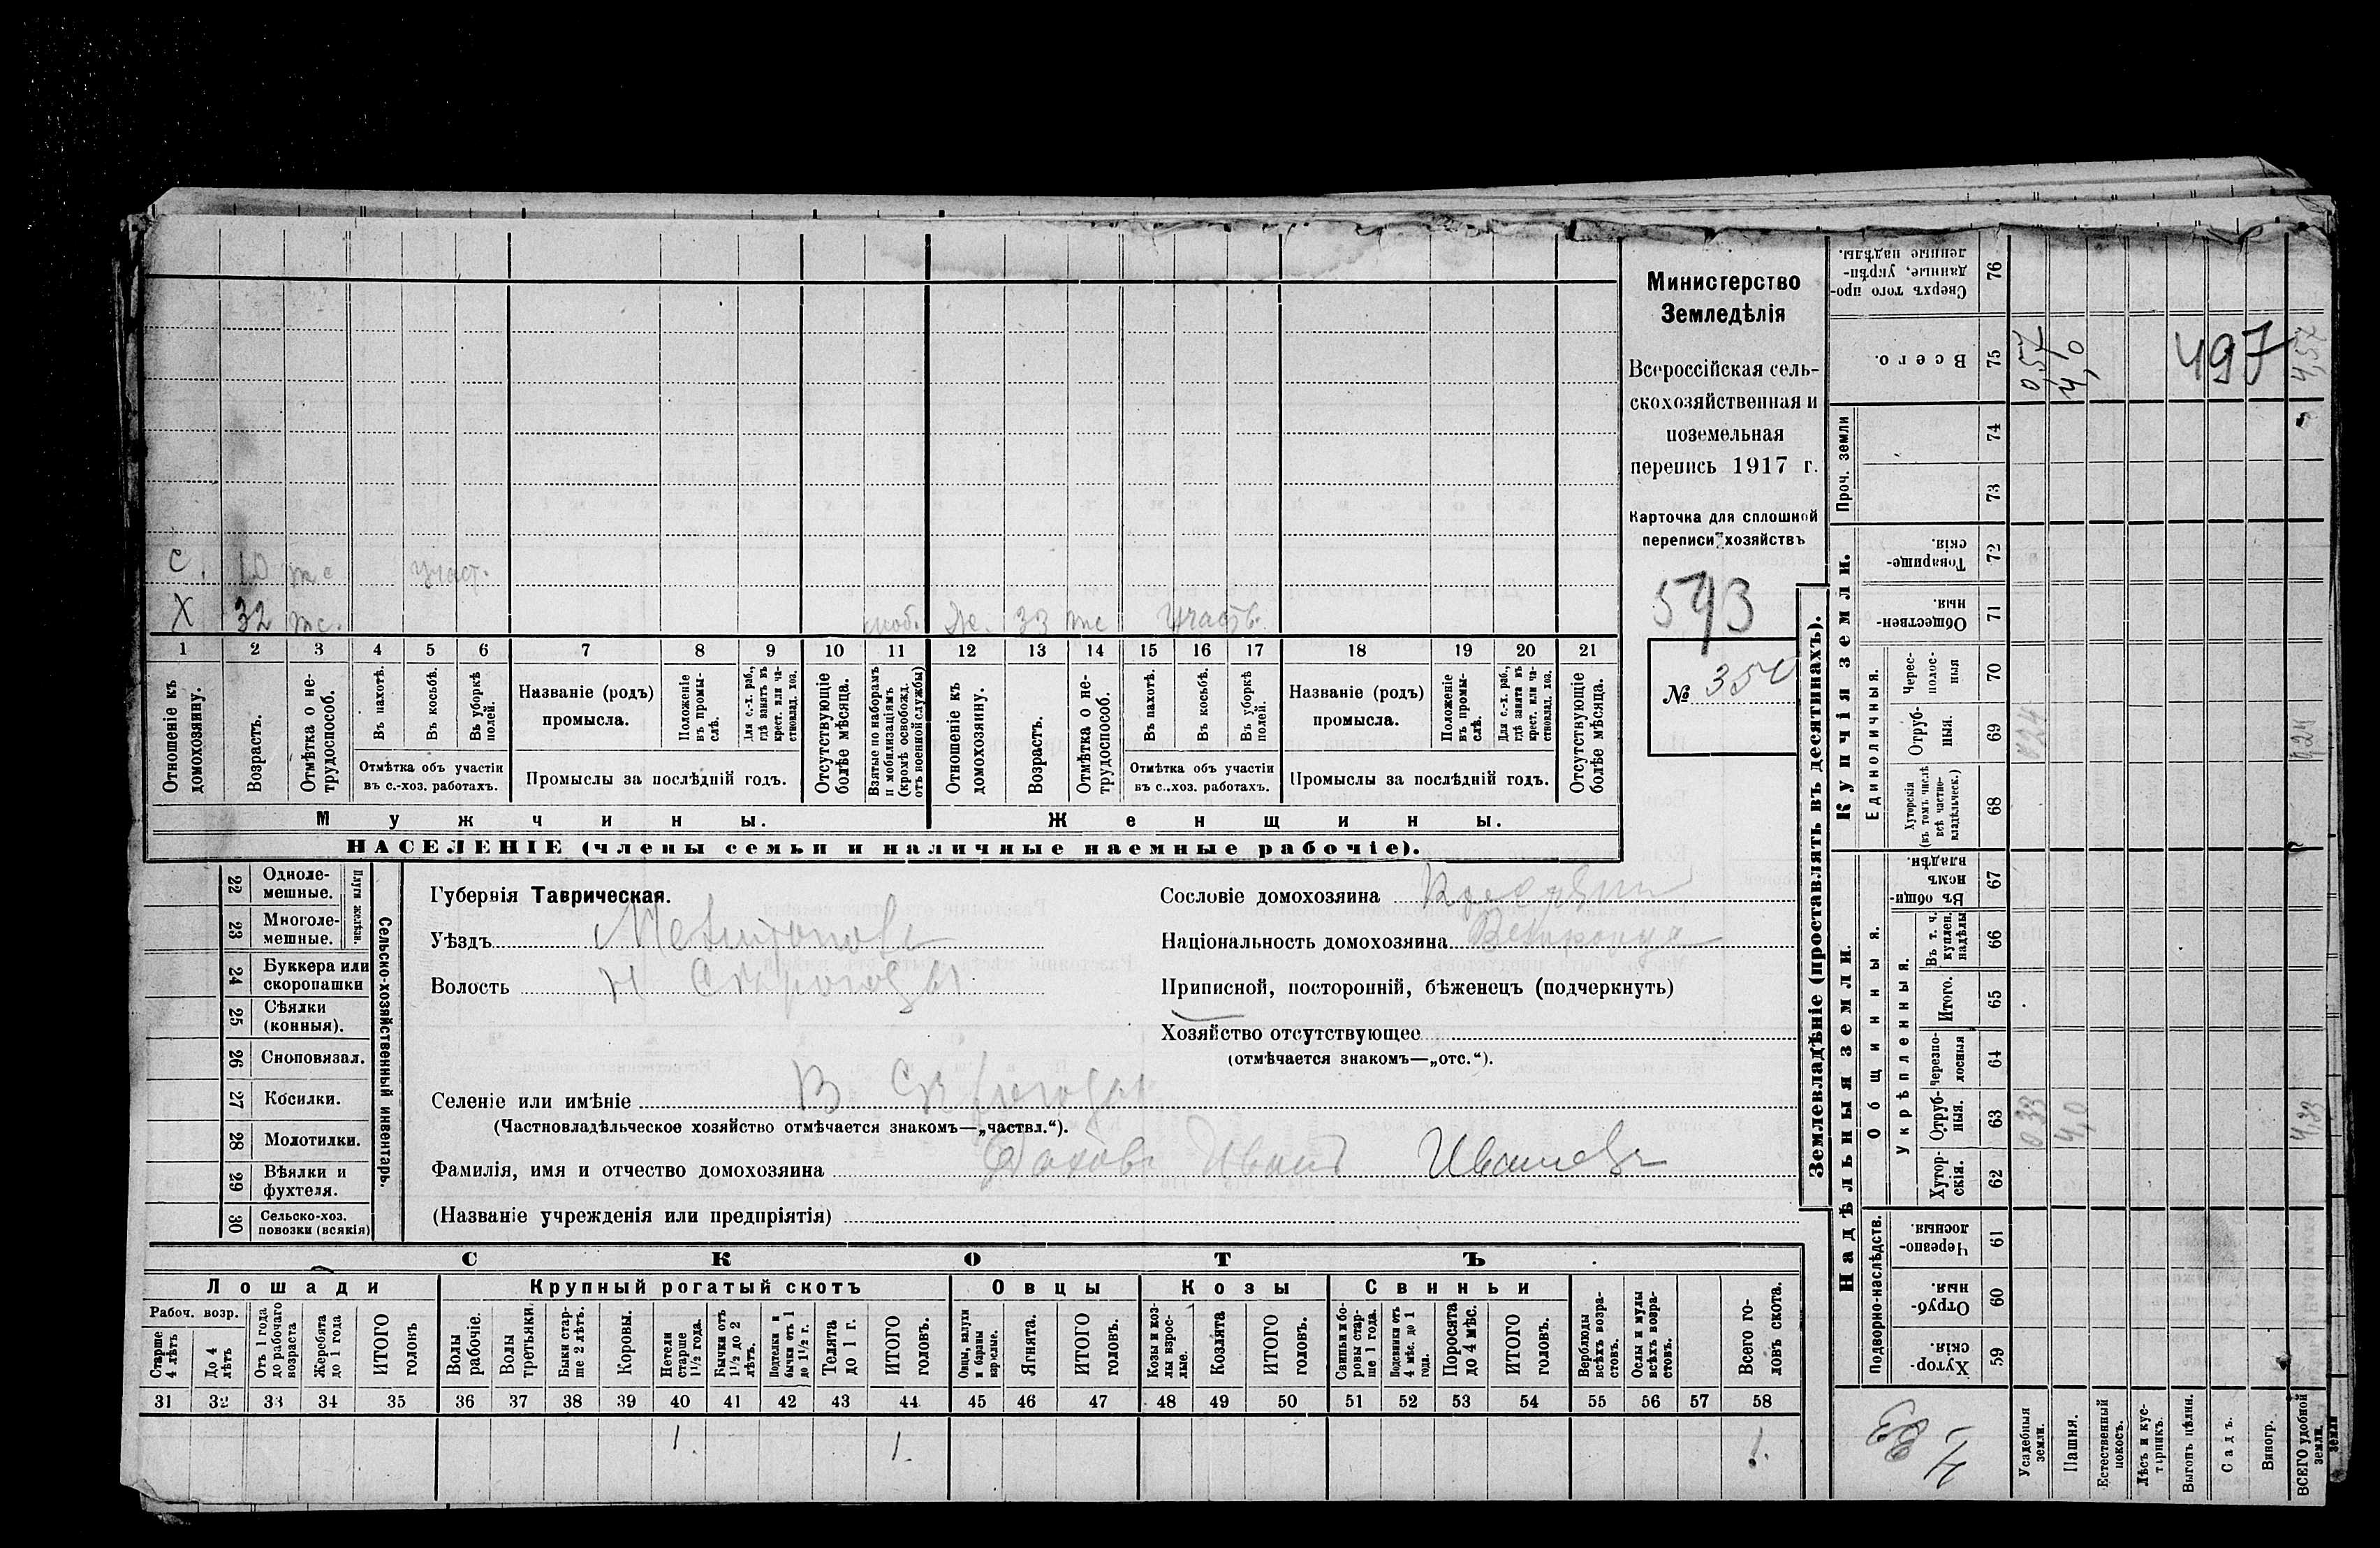 С. 10 мс участ.
Х 32 мс. моб. Ж. 33 мс Участв.
1 2 3 4 5 6 7 8 9 10 11 12 13 14 15 16 17 18 19 20 21
Отношеніе къ домохозяину.
Возрастъ.
Отмѣтка о не-трудоспособ.
Въ пахотѣ.
Въ косьбѣ.
Въ уборкѣ полей.
Отмѣтка объ участіи
въ с.-хоз. работахъ.
Названіе (родъ)
промысла.
Положеніе въ промы-слѣ.
Для с.-х. раб., гдѣ занятъ въ крест. или ча-стновлад. хоз.
Промыслы за послѣдній годъ.
Отсутствующіе болѣе мѣсяца.
Взятые по наборамъ и мобилизаціямъ (кромѣ освобожд. отъ военной службы)
Отношеніе къ домохозяину.
Возрастъ.
Отмѣтка о не-трудоспособ.
Въ пахотѣ.
Въ косьбѣ.
Въ уборкѣ полей.
Отмѣтка объ участіи
въ с.-хоз. работахъ.
Названіе (родъ)
промысла.
Положеніе въ промы-слѣ.
Для с.-х. раб., гдѣ занята въ крест. или ча-стновлад. хоз.
Промыслы за послѣдній годъ.
Отсутствующіе болѣе мѣсяца.
Мужчины. Женщины.
НАСЕЛЕНІЕ (члены семьи и наличные наемные рабочіе).
Министерство
Земледѣлія
Всероссійская сель-
скохозяйственная и
поземельная
перепись 1917 г.
Карточка для сплошной
переписи хозяйствъ
593
№ 350
22 Одноле-мешные.
23 Многоле-мешные.
Плуги желѣзн.
24 Буккера или скоропашки
25 Сѣялки (конныя).
26 Сноповязал.
27 Косилки.
28 Молотилки.
29 Вѣялки и фухтеля.
30 Сельско-хоз. повозки (всякія)
Сельско-хозяйственный инвентарь.
Губернія Таврическая.
Уѣздъ Мелитопольс
Волость Н Сѣрогозы
Сословіе домохозяина
Національность домохозяина
Приписной, посторонній, бѣженецъ (подчеркнуть)
Хозяйство отсутствующее
(отмѣчается знакомъ—„отс.“).
Селеніе или имѣніе В. Сѣрогозы
(Частновладѣльческое хозяйство отмѣчается знакомъ—„частвл.“).
Фамилія, имя и отчество домохозяина Иванъ Ивановъ
(Названіе учрежденія или предпріятія)
СКОТЪ
Лошади Крупный рогатый скотъ Овцы Козы Свиньи
Рабоч. возр.
Старше 4 лѣтъ
До 4 лѣтъ
Отъ 1 года до рабочаго возраста
Жеребята до 1 года
ИТОГО головъ
Волы рабочіе.
Волы третьяки.
Быки стар-ше 2 лѣтъ.
Коровы.
Нетели старше 1½ года.
Бычки отъ 1½ до 2 лѣтъ.
Подтелки и бычки отъ 1 до 1½ г.
Телята до 1 г.
ИТОГО головъ.
Овцы, валухи и бараны взрослые.
Ягнята.
ИТОГО головъ.
Козы и коз-лы взрос-лые.
Козлята
ИТОГО головъ.
Свиньи и бо-ровы стар-ше 1 года.
Подсвинки отъ 4 мѣс. до 1 года.
Поросята до 4 мѣс.
ИТОГО головъ.
Верблюды всѣхъ возра-стовъ.
Ослы и мулы всѣхъ возра-стовъ.
Всего го-ловъ скота.
31 32 33 34 35 36 37 38 39 40 41 42 43 44 45 46 47 48 49 50 51 52 53 54 55 56 57 58
1. 1. 1.
Землевладѣніе (проставлять въ десятинахъ).
Надѣльныя земли. Купчія земли. Проч. земли
Подворно-наслѣдств. Общинныя. Укрѣпленныя. Единоличныя.
Хутор-скія. 59
Отруб-ныя. 60
Черезпо-лосныя 61
Хутор-скія. 62
Отруб-ныя. 63 0 33 4,0 4,33
черезпо-лосныя 64
Итого. 65
Въ т. ч. куплен. надѣлы 66
Въ общин-номъ владѣн. 67
Хуторскія (въ томъ числѣ всѣ частно-владѣльческ.) 68
Отруб-ныя. 69 0 24 0,24
Черес-полос-ныя 70
Обществен-ныя. 71
Товарище-скія. 72
73
74
Всего. 75 0,57 4,0 497 4,57
Сверхъ того про-данные, укрѣп-ленные надѣлы. 76
Усадебныя земли.
Пашня.
Естественный покосъ.
Лѣсъ и кус-тарникъ.
Выгонъ цѣлин.
Садъ.
Виногр.
ВСЕГО удобной земли.